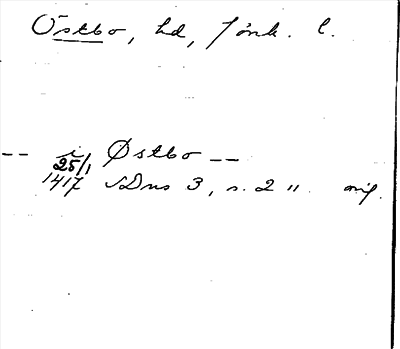 Östbo, hd, Jönk. l.
-- i Østbo --
25/1
1417 SDns 3, s. 211. orig.